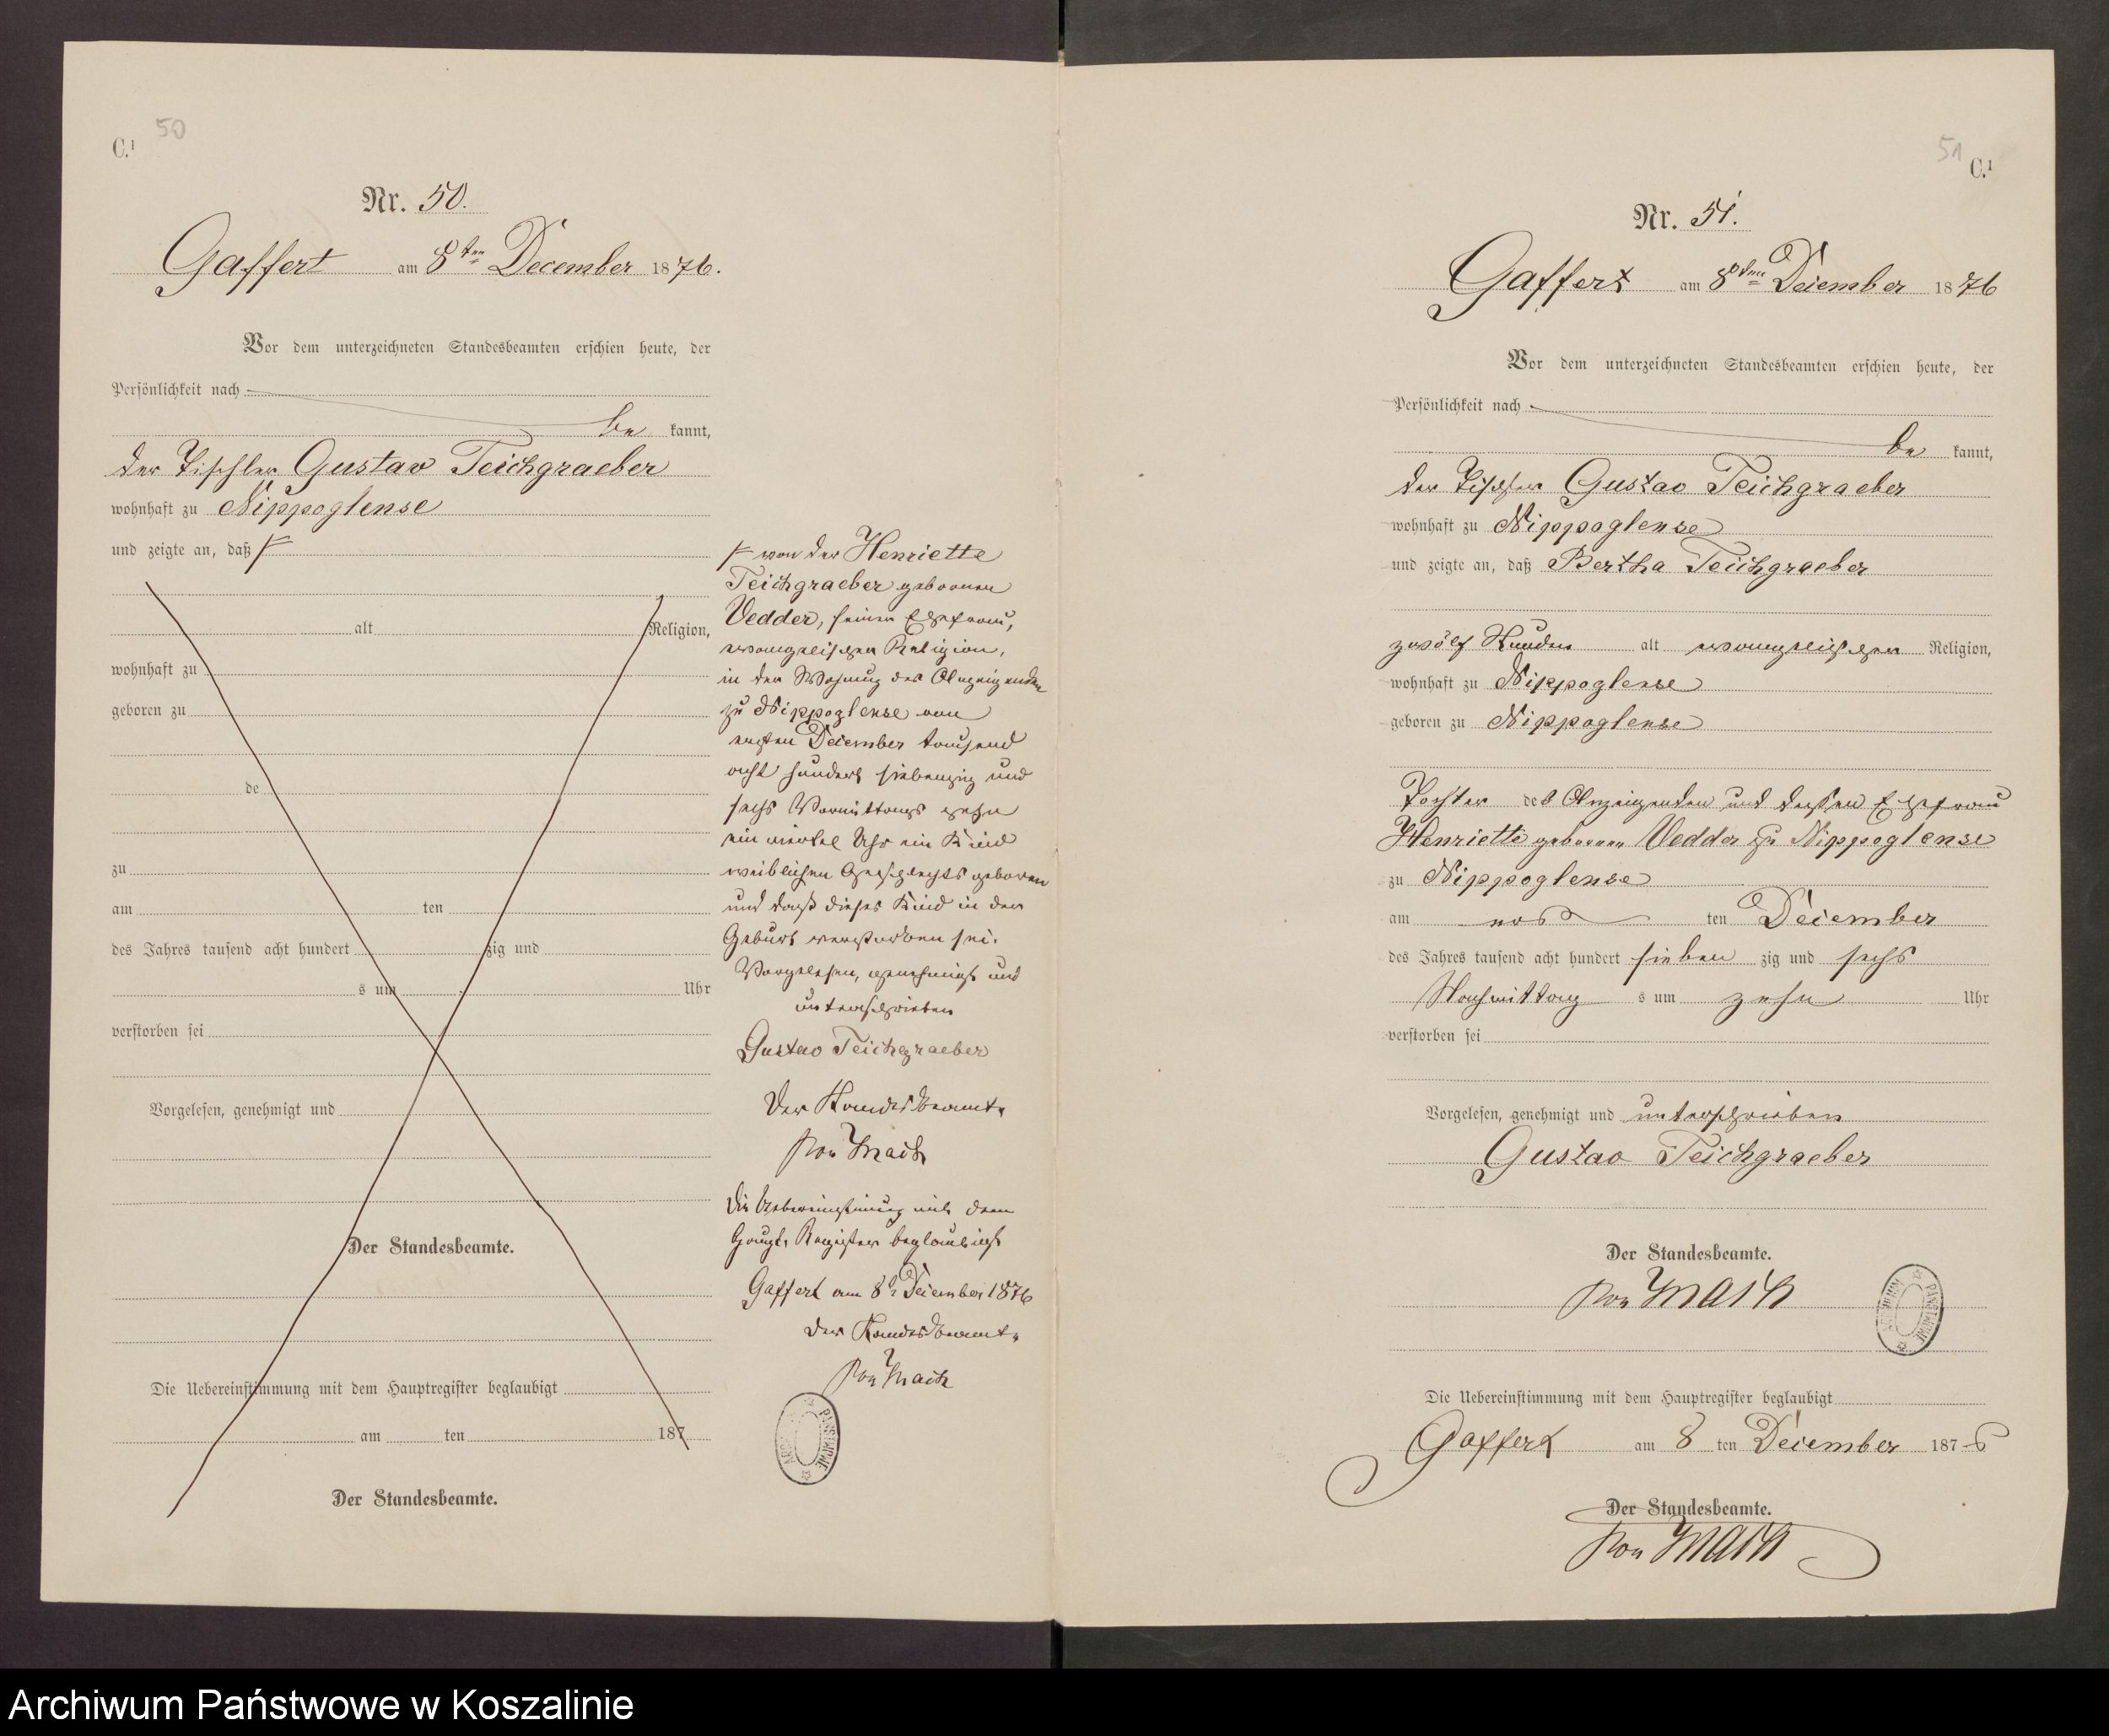 50
C.¹
Nr. 50.
Gaffert am 8ten December 1876.
Vor dem unterzeichneten Standesbeamten erschien heute, der
Persönlichkeit nach
be kannt,
der Tischler Gustav Teichgraeber
wohnhaft zu Nippoglense
und zeigte an, daß
alt Religion,
wohnhaft zu
geboren zu
de
zu
am ten
des Jahres tausend acht hundert zig und
s um Uhr
verstorben sei
Vorgelesen, genehmigt und
Der Standesbeamte.
Die Uebereinstimmung mit dem Hauptregister beglaubigt
am ten 187
Der Standesbeamte.
von der Henriette
Teichgraeber geborenen
Vedder, seiner Ehefrau,
evangelischer Religion,
in der Wohnung des Anzeigenden
zu Nippoglense am
achten December tausend
acht hundert siebenzig und
sechs Vormittags zehn
ein viertel Uhr ein Kind
weiblichen Geschlechts geboren
und daß dieses Kind in der
Geburt verstorben sei.
Vorgelesen, genehmigt und
unterschrieben
Gustav Teichgraeber
Der Standesbeamte
von
Die Uebereinstimmung mit dem
Haupt Register beglaubigt
Gaffert am 8t December 1876
Der Standesbeamte
von
51
C.¹
Nr. 51.
Gaffert am 8ten December 1876
Vor dem unterzeichneten Standesbeamten erschien heute, der
Persönlichkeit nach
be kannt,
der Tischler Gustav Teichgraeber
wohnhaft zu Nippoglense
und zeigte an, daß Bertha Teichgraeber
zwölf Stunden alt evangelischer Religion,
wohnhaft zu Nippoglense
geboren zu Nippoglense
Tochter des Anzeigenden und dessen Ehefrau
Henriette geborenen Vedder zu Nippoglense
zu Nippoglense
am ten December
des Jahres tausend acht hundert sieben zig und sechs
Nachmittag s um zehn Uhr
verstorben sei
Vorgelesen, genehmigt und unterschrieben
Gustav Teichgraeber
Der Standesbeamte.
von
Die Uebereinstimmung mit dem Hauptregister beglaubigt
Gaffert am 8 ten December 1876
Der Standesbeamte.
von
Archiwum Państwowe w Koszalinie